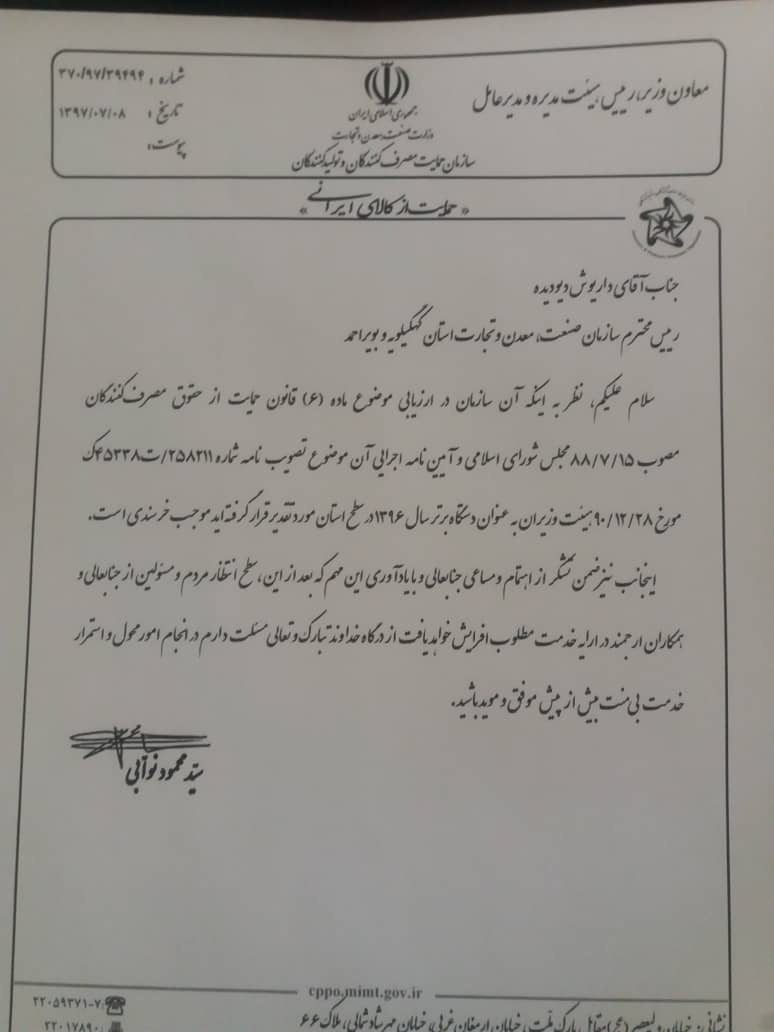 معاون وزیر، رییس هیئت مدیره و مدیرعامل
جمهوری اسلامی ایران
وزارت صنعت، معدن و تجارت
سازمان حمایت مصرف کنندگان و تولیدکنندگان
شماره : ۳۷۰/۹۷/۳۹۴۹۴
تاریخ : ۱۳۹۷/۰۷/۰۸
پیوست:
«حمایت از کالای ایرانی»
جناب آقای داریوش دیودیده
رییس محترم سازمان صنعت، معدن و تجارت استان کهگیلویه و بویراحمد
سلام علیکم، نظر به اینکه آن سازمان در ارزیابی موضوع ماده (۶) قانون حمایت از حقوق مصرف کنندگان
مصوب ۸۸/۷/۱۵ مجلس شورای اسلامی و آیین نامه اجرایی آن موضوع تصویب نامه شماره ۲۵۸۲۱۱/ت۴۵۳۳۸ک
مورخ ۹۰/۱۲/۲۸ هیئت وزیران به عنوان دستگاه برتر سال ۱۳۹۶ در سطح استان مورد تقدیر قرار گرفته اید موجب خرسندی است.
اینجانب نیز ضمن تشکر از اهتمام و مساعی جنابعالی و با یادآوری این مهم که بعد از این، سطح انتظار مردم و مسئولین از جنابعالی و
همکاران ارجمند در ارایه خدمت مطلوب افزایش خواهد یافت از درگاه خداوند تبارک و تعالی مسئلت دارم در انجام امور محول و استمرار
خدمت بی منت بیش از پیش موفق و موید باشید.
سید محمود نوابی
cppo.mimt.gov.ir
۲۲۰۵۹۳۷۱-۷:
۲۲۰۱۷۸۹۰:
نشانی: خیابان ولیعصر (عج) مقابل پارک ملت، خیابان ارمغان غربی، خیابان مهرشاد شمالی، پلاک ۶۶